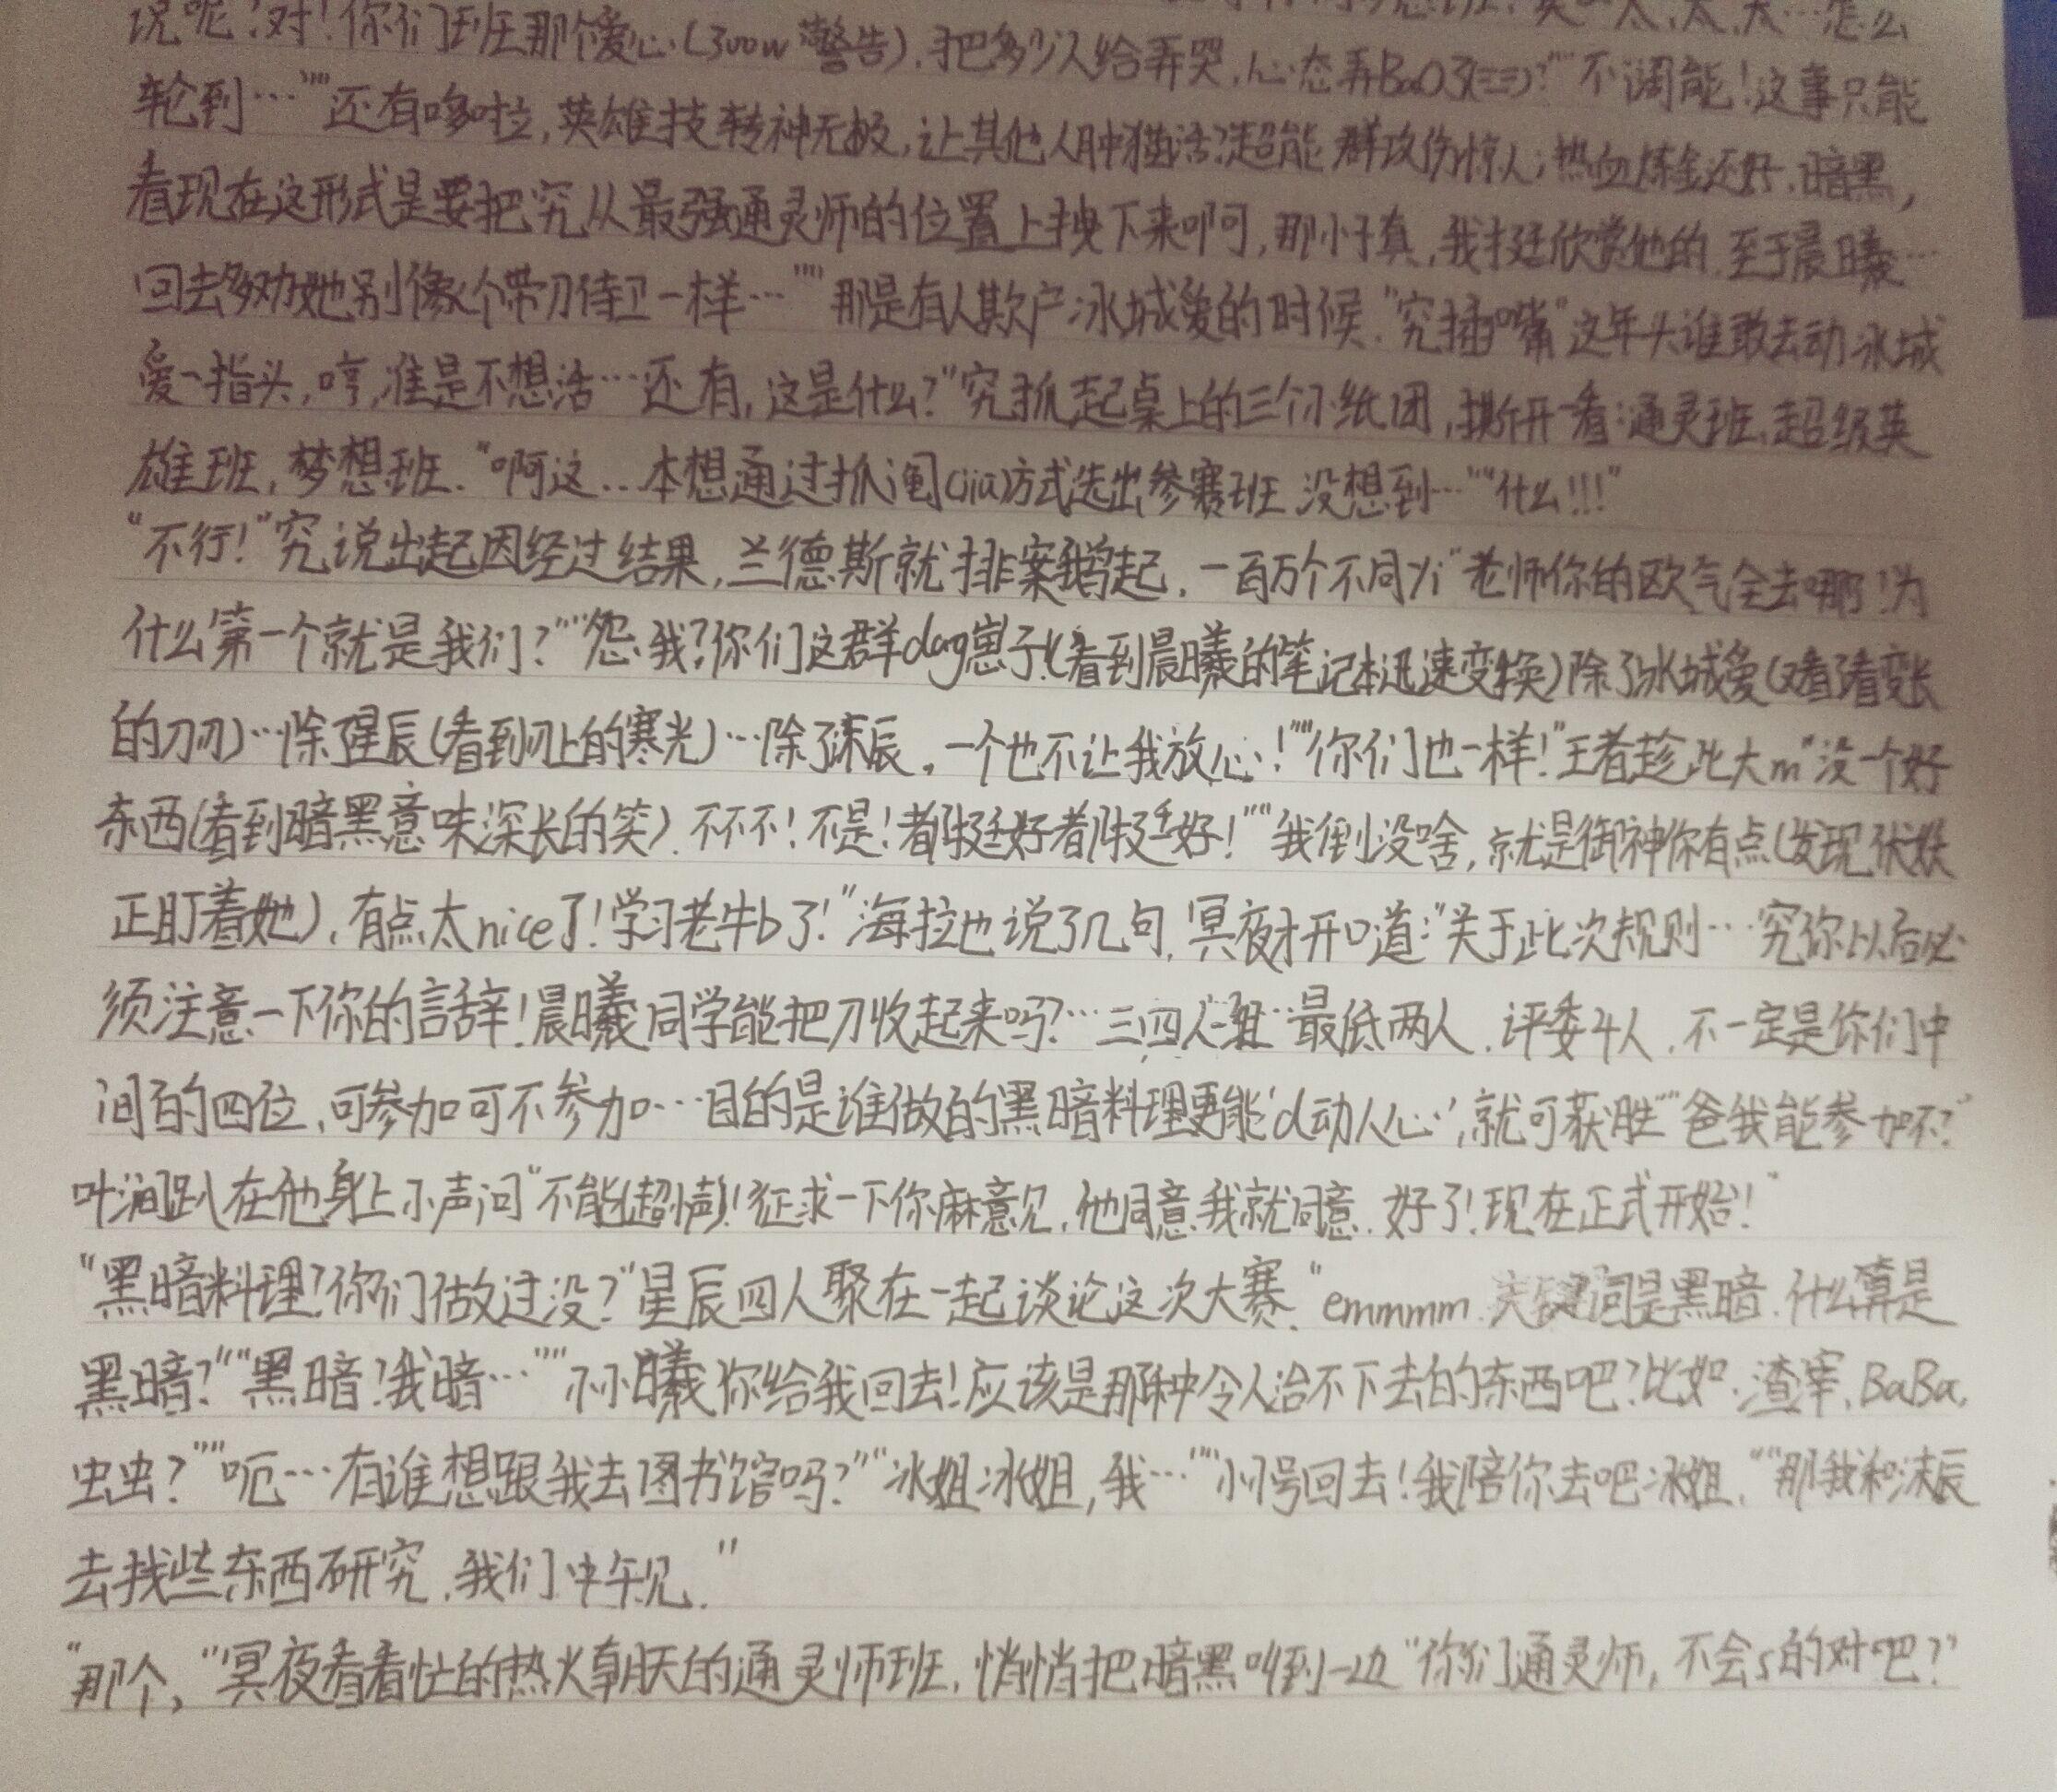 说呢?对!你们班那个爱心(300w警告),把多少人给弄哭,心态弄BaoZ(==)?""不调能!这事只能
轮到…""还有哆啦,英雄技转神无极,让其他人肿猫活?超能群攻伤惊人;热血炼金还好.暗黑,
看现在这形式是要把究从最强通灵师的位置上拽下来啊,那小子真,我挺欣赏他的.至于晨曦…
回去多劝她别像个带刀侍卫一样…""那是有人欺户冰城爱的时候."究插嘴"这年头谁敢去动冰城
爱一指头,哼,准是不想活…还有,这是什么?"究抓起桌上的三个小纸团,撕开一看:通灵班、超级英
雄班,梦想班."啊这…本想通过抓阄(jiu)方式选出参赛班.没想到…""什么!!!"
"不行!"究说出起因经过结果,兰德斯就排案而起,一百万个不同yi"老师你的欧气全去哪了!为
什么第一个就是我们?""怨我?你们这群dog崽子(看到晨曦的笔记本迅速变换)除了冰城爱(又看了看变长
的刀刃)…除星辰(看到刃上的寒光)…除了沫辰,一个也不让我放心!""你们也一样!"王者趁此大m"没一个好
东西(看到暗黑意味深长的笑).不不不!不是!都挺好都挺好!""我倒没啥,就是御神你有点(发现伏妖
正盯着她),有点太nice了!学习老牛b了!"海拉也说了几句,冥夜才开口道:"关于此次规则…究你以后必
须注意一下你的話辞!晨曦同学能把刀收起来吗?…三四人一组…最低两人.评委4人.不一定是你们中
间的四位,可参加可不参加…目的是谁做的黑暗料理更能'd动人心',就可获胜""爸我能参加不?"
叶澜趴在他身上小声问"不能(超凶)!征求一下你麻意见,他同意我就同意.好了!现在正式开始!"
"黑暗料理?你们做过没?"星辰四人聚在一起谈论这次大赛."emmmm.关键词是黑暗.什么算是
黑暗?""黑暗!我暗…""小小曦你给我回去!应该是那种令人治不下去的东西吧?比如:渣宰,BaBa,
虫虫?""呃…有谁想跟我去图书馆吗?""冰姐冰姐,我…""小号回去!我陪你去吧冰姐.""那我和沫辰
去找些东西研究.我们中午见."
"那个,"冥夜看看忙的热火朝天的通灵师班,悄悄把暗黑叫到一边"你们通灵师,不会s的对吧?"